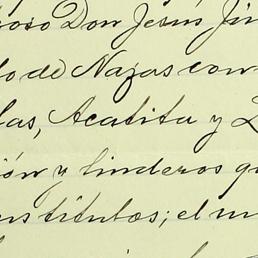 oso Don Jesus Jim
o de Nazas con
las, Acatita y L
ión y linderos qu
nstitutos; el m